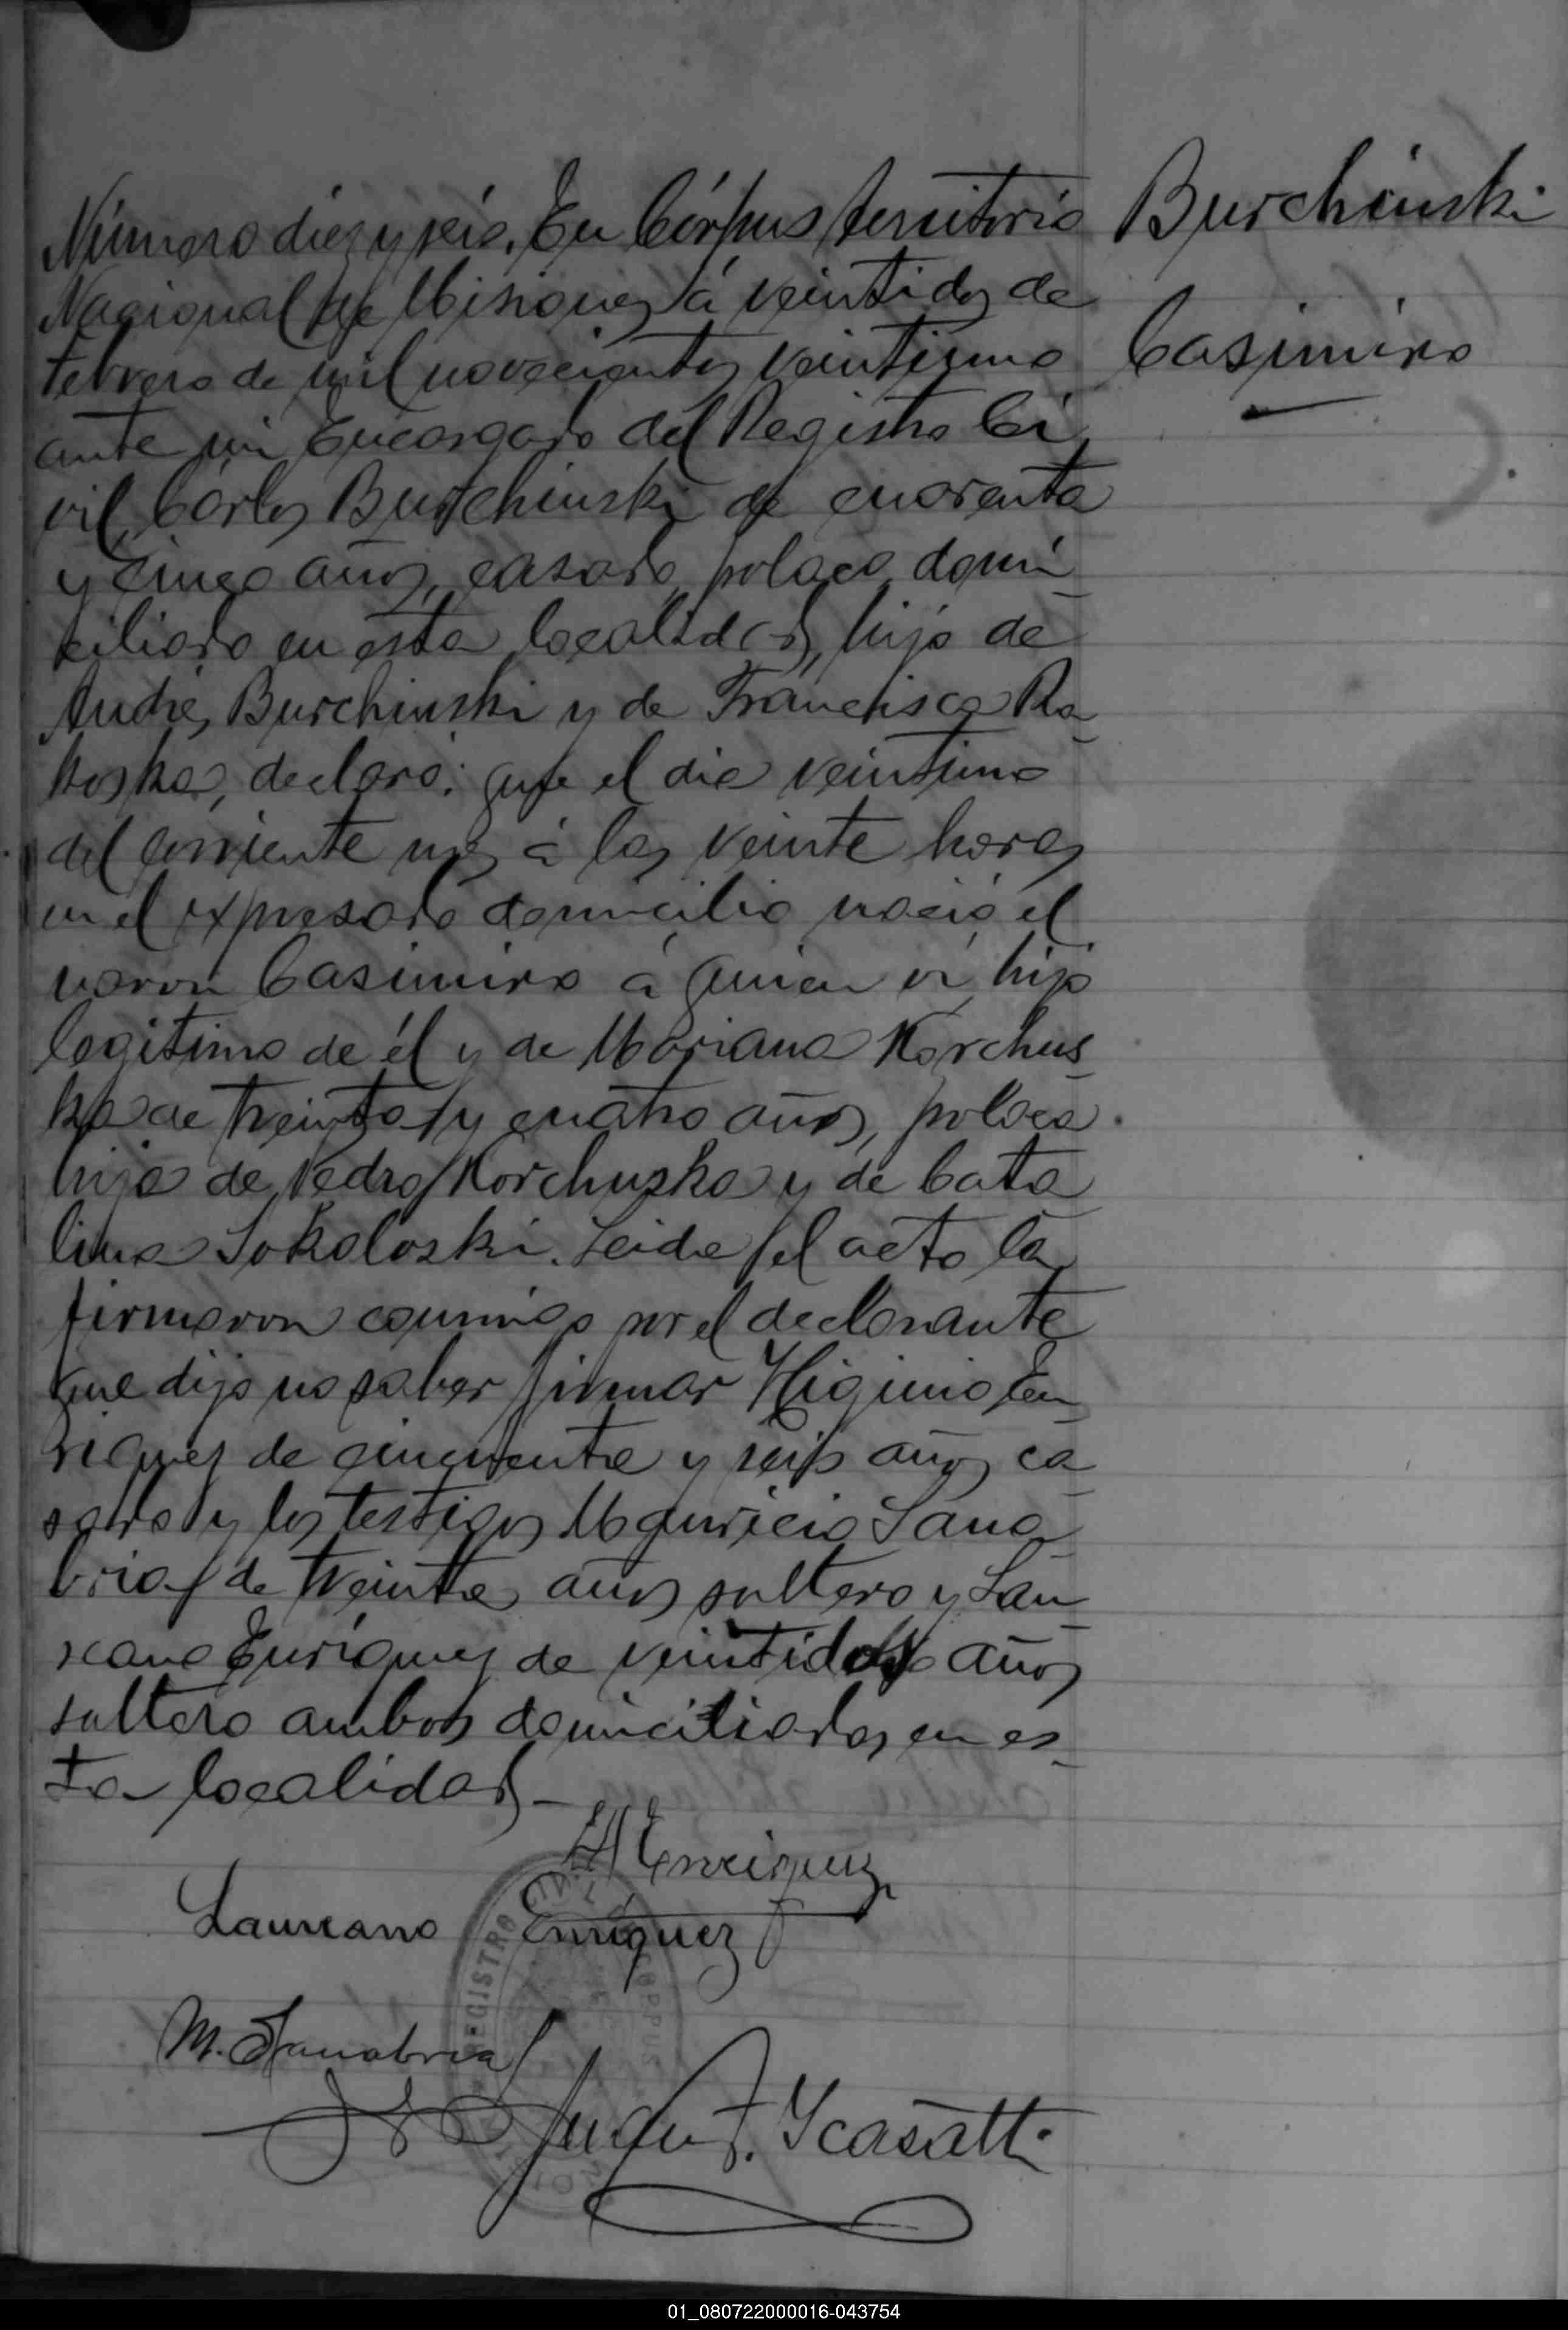 Burchinski
Casimiro
Número diez y seis. En Córpus territorio
Nacional de Misiones á veintidos de
Febrero de mil novecientos veintiuno
ante mi Encargado del Registro Ci
vil, Cárlos Burchinski de cuarenta
y cinco años, casado, polaco, domi-
ciliado en esta localidad, hijo de
Andrés Burchinski y de Francisca Ra-
koska, declaró: que el dia veintiuno
del corriente mes á las veinte horas
en el expresado domicilio nació el
varon Casimiro á quien ví, hijo
legítimo de él y de Mariana Korchus-
ka de treinta y cuatro años, polaca
hija de Pedro Korchuska y de Cata
lina Sokoloski. Leida el acta la
firmaron conmigo por el declarante
que dijo no saber firmar Higinio En-
riquez de cincuenta y seis años ca-
sado y los testigos Mauricio Sana-
bria de treinta años soltero y Lau-
reano Enríquez de veintidos años
soltero ambos domiciliados en es-
ta localidad.-
H Enriquez
Laureano Enríquez
M. Sanabria
F. Ycasatti
REGISTRO CIVIL
CORPUS
01_080722000016-043754